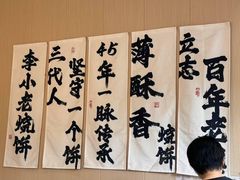 李小老烧饼
三代人
坚守一个饼
45年一脉传承
薄酥香
烧饼
立志
百年老